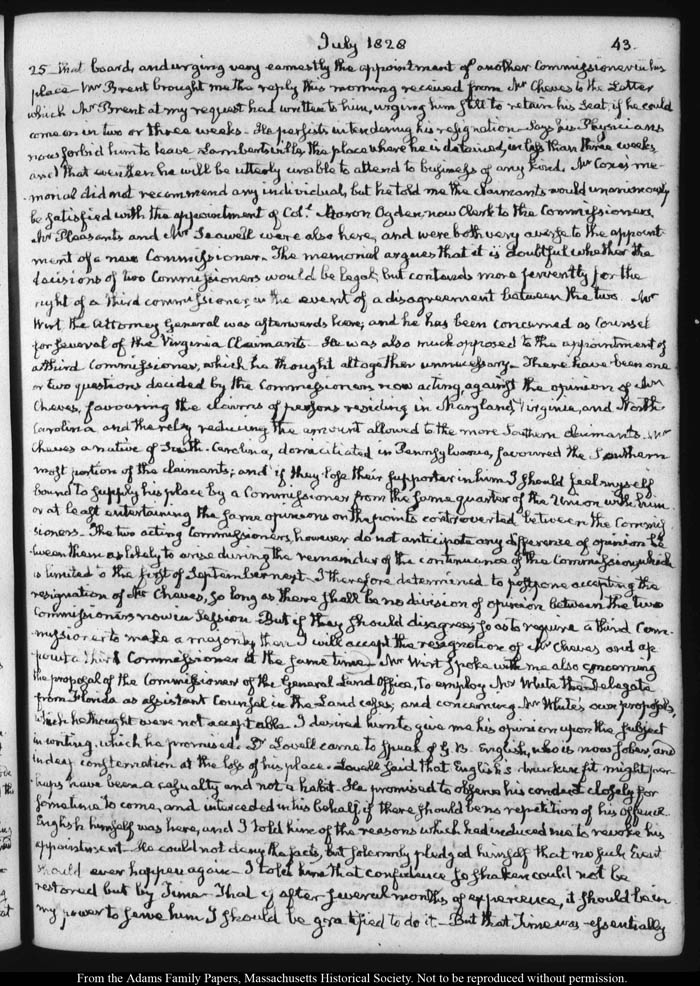 July 1828 43.
25 that board, and urging very earnestly the appointment of another Commissioner in his
place. Mr Brent brought me the reply this morning received from Mr Cheves to the Letter
which Mr Brent at my request had written to him, urging him still to retain his Seat, if he could
come on in two or three weeks. He persists in tendering his resignation. Says his Physicians
now forbid him to leave Lambertsville, the place where he is detained, in less than three weeks
and that even then he will be utterly unable to attend to business of any kind. Mr Coxe's me-
morial did not recommend any individual, but he told me the claimants would unanimously
be satisfied with the appointment of Col. Aaron Ogden, now Clerk to the Commissioners.
Mr Pleasants and Mr Seawell were also here, and were both very averse to the appoint-
ment of a new Commissioner. The memorial argues that it is doubtful whether the
decisions of two Commissioners would be legal; but contends more fervently for the
right of a third commissioner, in the event of a disagreement between the two. Mr
Wirt the Attorney General was afterwards here, and he has been concerned as Counsel
for several of the Virginia Claimants. He was also much opposed to the appointment of
a third Commissioner, which he thought altogether unnecessary. There have been one
or two questions decided by the Commissioners now acting, against the opinion of Mr
Cheves, favouring the claims of persons residing in Maryland, Virginia, and North-
Carolina and thereby reducing the amount allowed to the more Southern claimants. Mr
Cheves a native of South-Carolina, domiciliated in Pennsylvania, favoured the Southern
most portion of the claimants; and if they lose their supporter in him I should feel myself
bound to supply his place by a Commissioner from the same quarter of the Union with him
or at least entertaining the same opinions on the points controverted between the Commis-
sioners. The two acting Commissioners, however do not anticipate any difference of opinion be-
tween them as likely to arise during the remainder of the continuance of the Commission, which
is limited to the first of September next. I therefore determined to postpone accepting the
resignation of Mr Cheves, so long as there shall be no division of opinion between the two
Commissioners now in Session. But if they should disagree, so as to require a third Com-
missioner to make a majority then I will accept the resignation of Mr Cheves and ap-
point a third Commissioner at the same time. Mr Wirt spoke with me also concerning
the proposal of the Commissioner of the General Land Office, to employ Mr White the Delegate
from Florida as assistant Counsel in the Land cases; and concerning Mr White's own proposals,
which he thought were not acceptable. I desired him to give me his opinion upon the subject
in writing, which he promised. Dr Lovell came to speak of G. B. English, who is now sober, and
in deep consternation at the loss of his place. Lovell said that English's fit might per-
haps have been a casualty and not a habit. He promised to observe his conduct closely for
sometime to come, and interceded in his behalf, if there should be no repetition of his offence.
English himself was here, and I told him of the reasons which had induced me to revoke his
appointment. He could not deny the facts, but solemnly pledged himself that no such Event
should ever happen again. I told him that confidence so shaken could not be
restored but by Time. That if after several months of experience, it should be in
my power to serve him I should be gratified to do it. But that Time was essentially
From the Adams Family Papers, Massachusetts Historical Society. Not to be reproduced without permission.